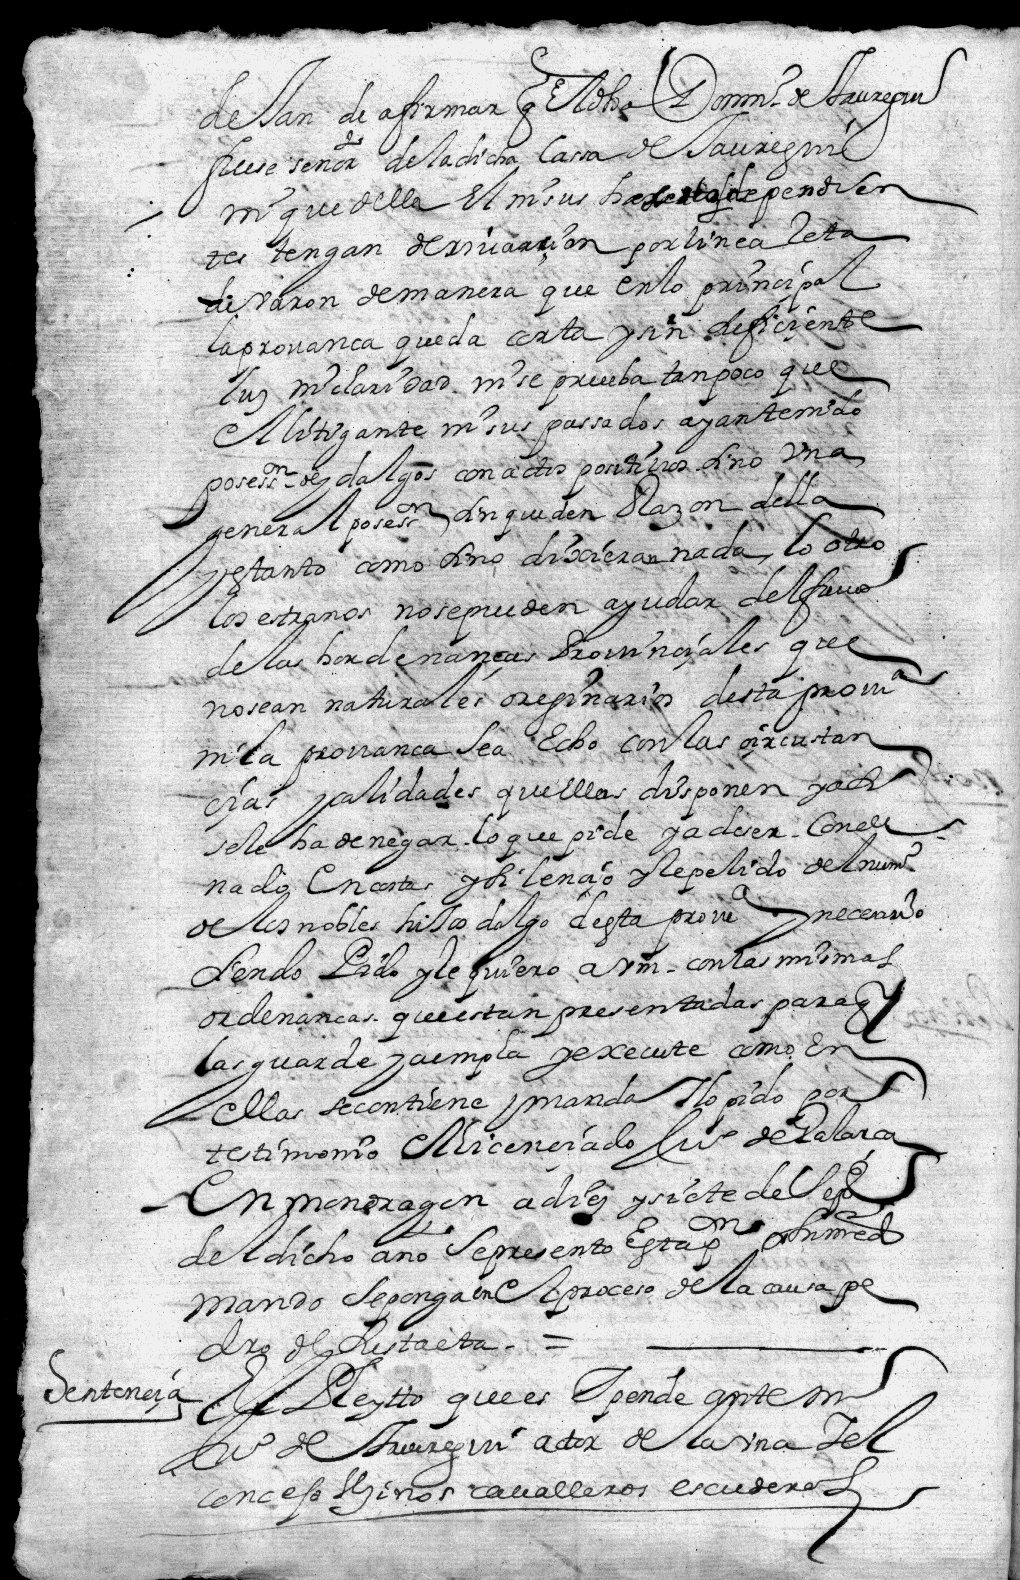 dejan de afirmar q El dho Domin.º de Jauregui
fuese señor de la dicha Cassa de Jauregui
ni que della El ni sus dependien
tes tengan deriuacion por linea Reta
de varon de manera que en lo principal
la prouanca queda corta y sin deficiente
luz ni claridad ni se prueba tanpoco que
El litigante ni sus passados ayan tenido
posess.on de ydalgos con actos positiuos sino Vna
general posess.on sin que den Razon della
y es tanto como sino dixieran nada, lo otro
los estranos no se pueden ayudar del fuero
de las hordenancas Prouinciales que
no sean naturales oreginarios desta prou.a
ni la prouanca sea Echo con las circustan
cias y calidades quellas disponen y asi
se le ha de negar lo que pide y a de ser Conde
nado En costas y silencio y Repelido del num.º
de los nobles hijos dalgo desta prou.a y necesario
siendo Pido y Requiero a Vm. con las mismas
ordenancas que estan presentadas para q
las guarde y cumpla y execute como En
Ellas se contiene y manda y lo pido por
testimonio El licenciado Luis de Galarca
En mondragon a diez y siete de Sep.e
del dicho ano Se presento Esta p.on y su md
mando Se ponga en El proceso de la causa pe
dro de Ristaeta. =
Sentencia
El Pleytto que es y pende ante mi
de Jauregui actor de la vna y el
concejo Vezinos caualleros escuderos